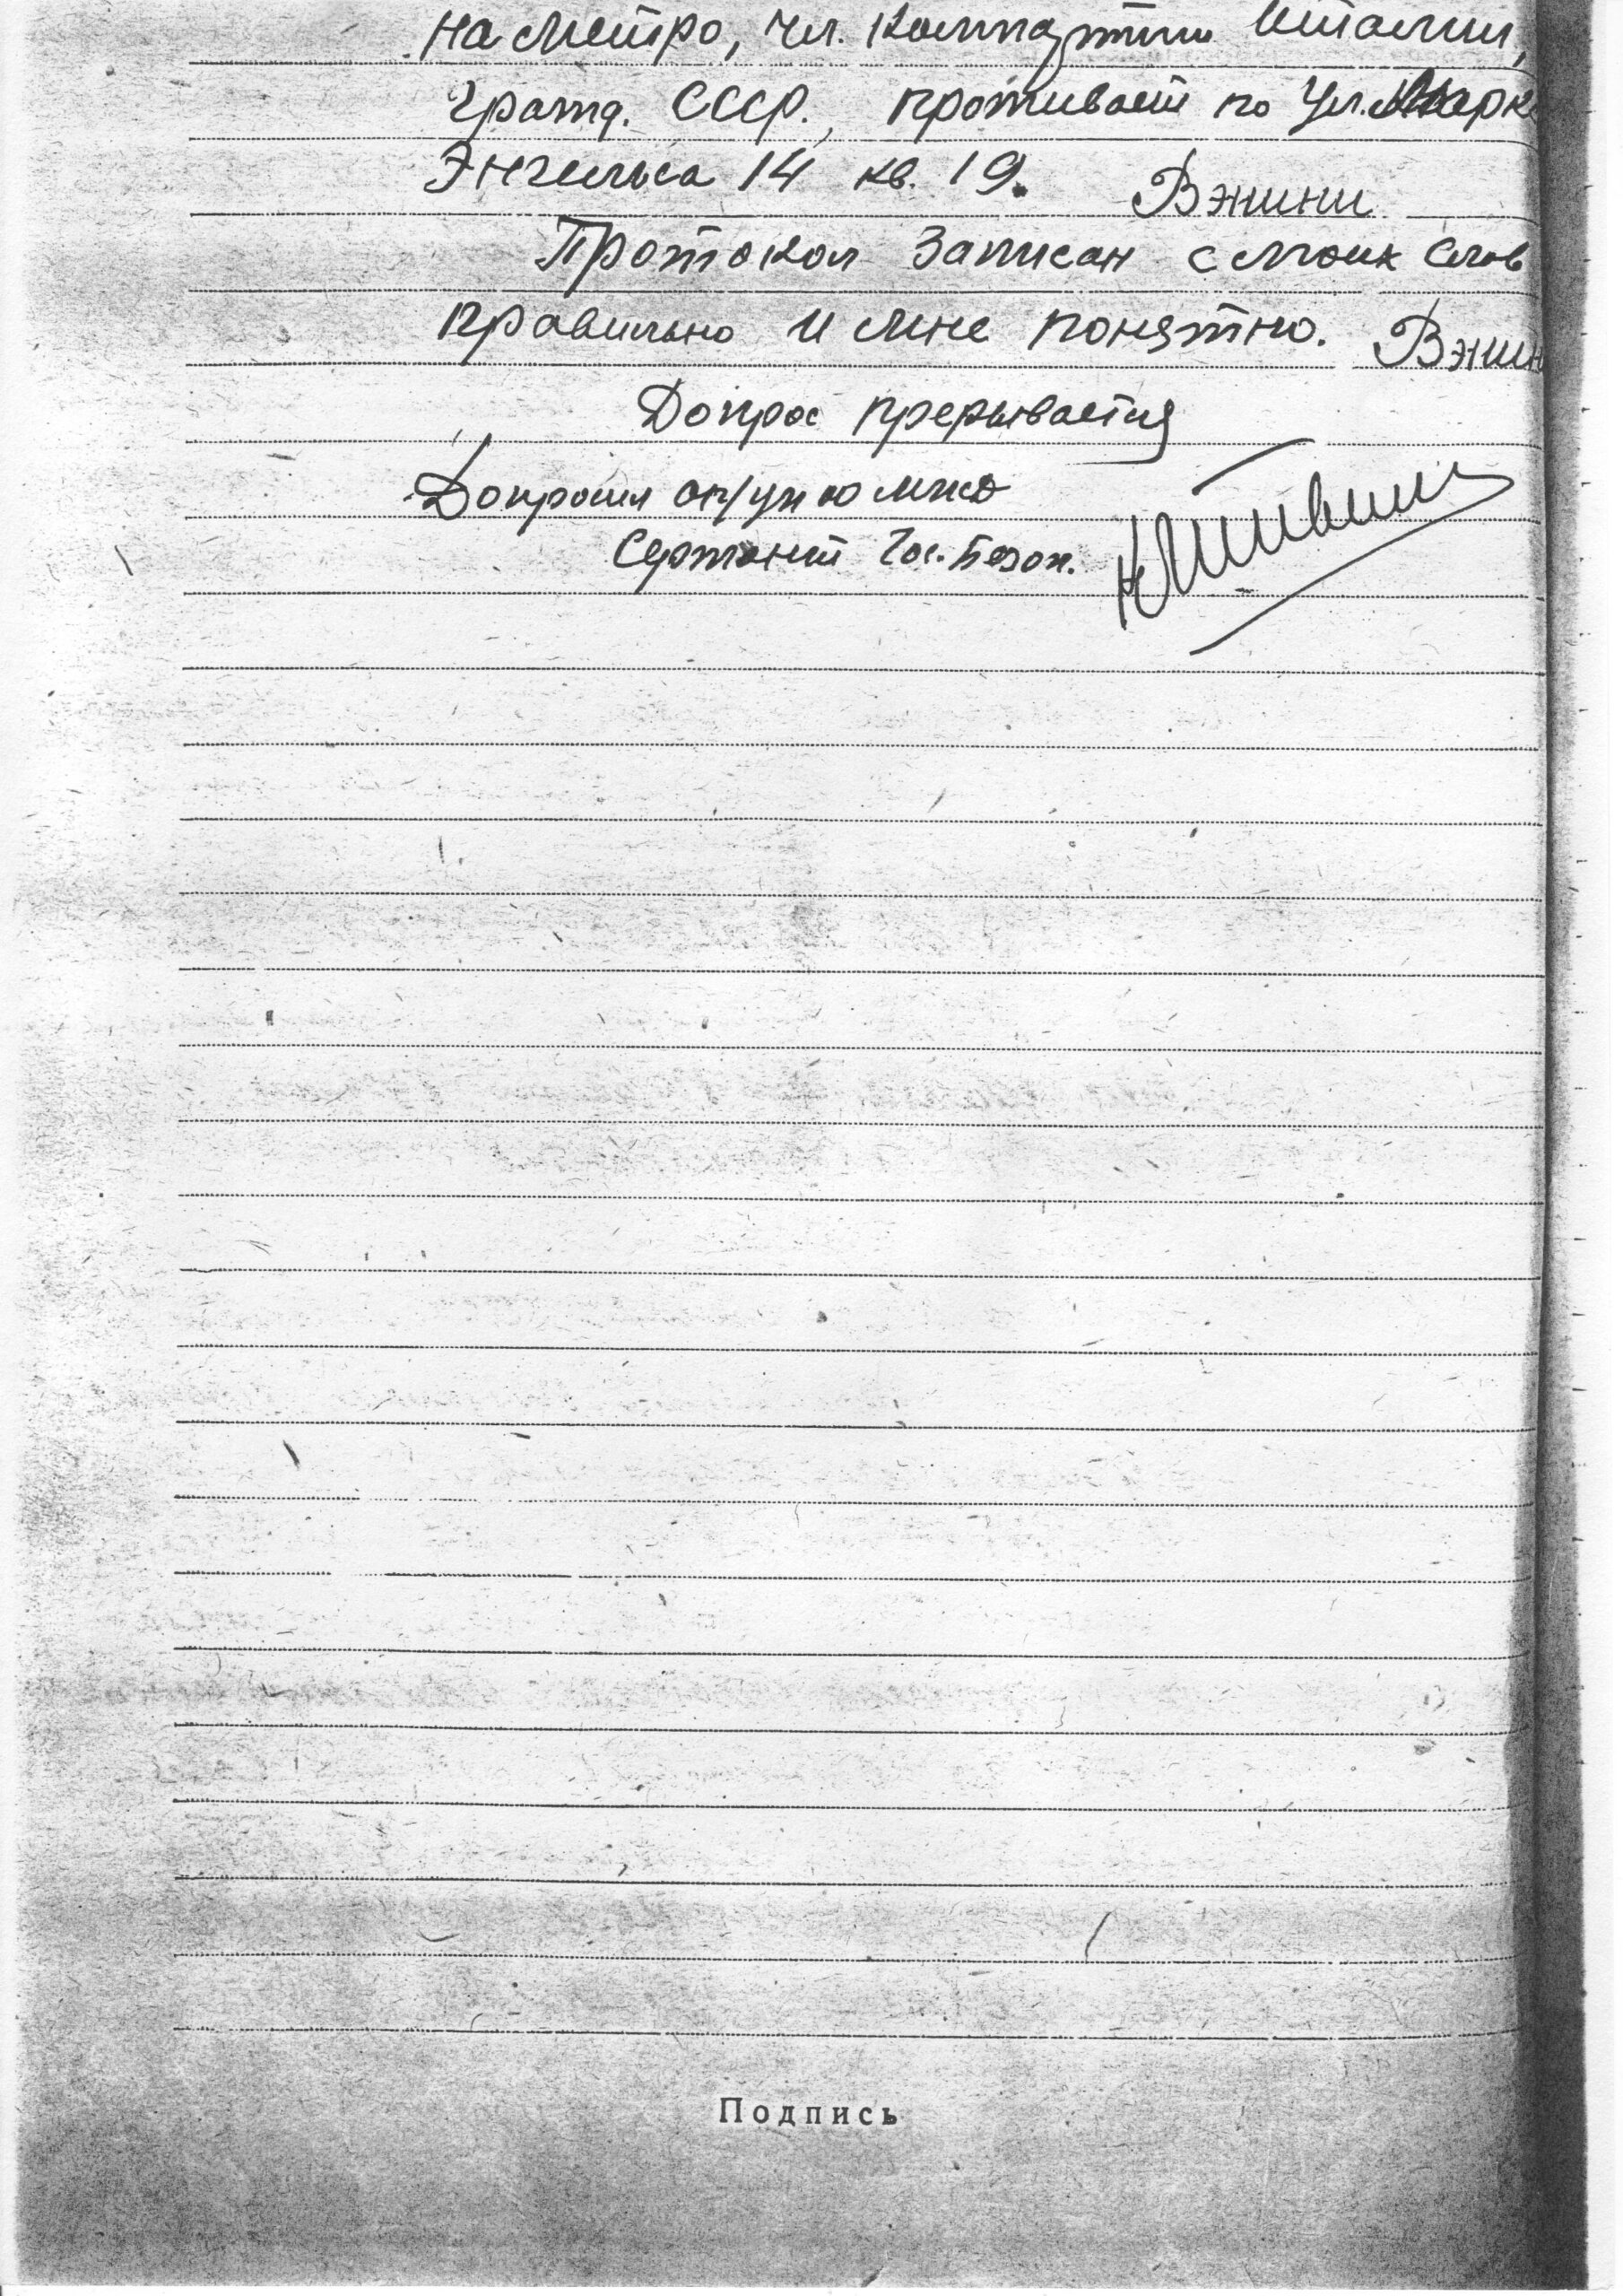 на Метро, чл. Компартии Италии,
гражд. СССР., проживает по ул. Марк
Энгельса 14 кв. 19. Вэнини
Протокол записан с моих слов
правильно и мне понятно. Вэнин
Допрос прерывается
Допросил
Сержант Гос. Безоп.
Подпись